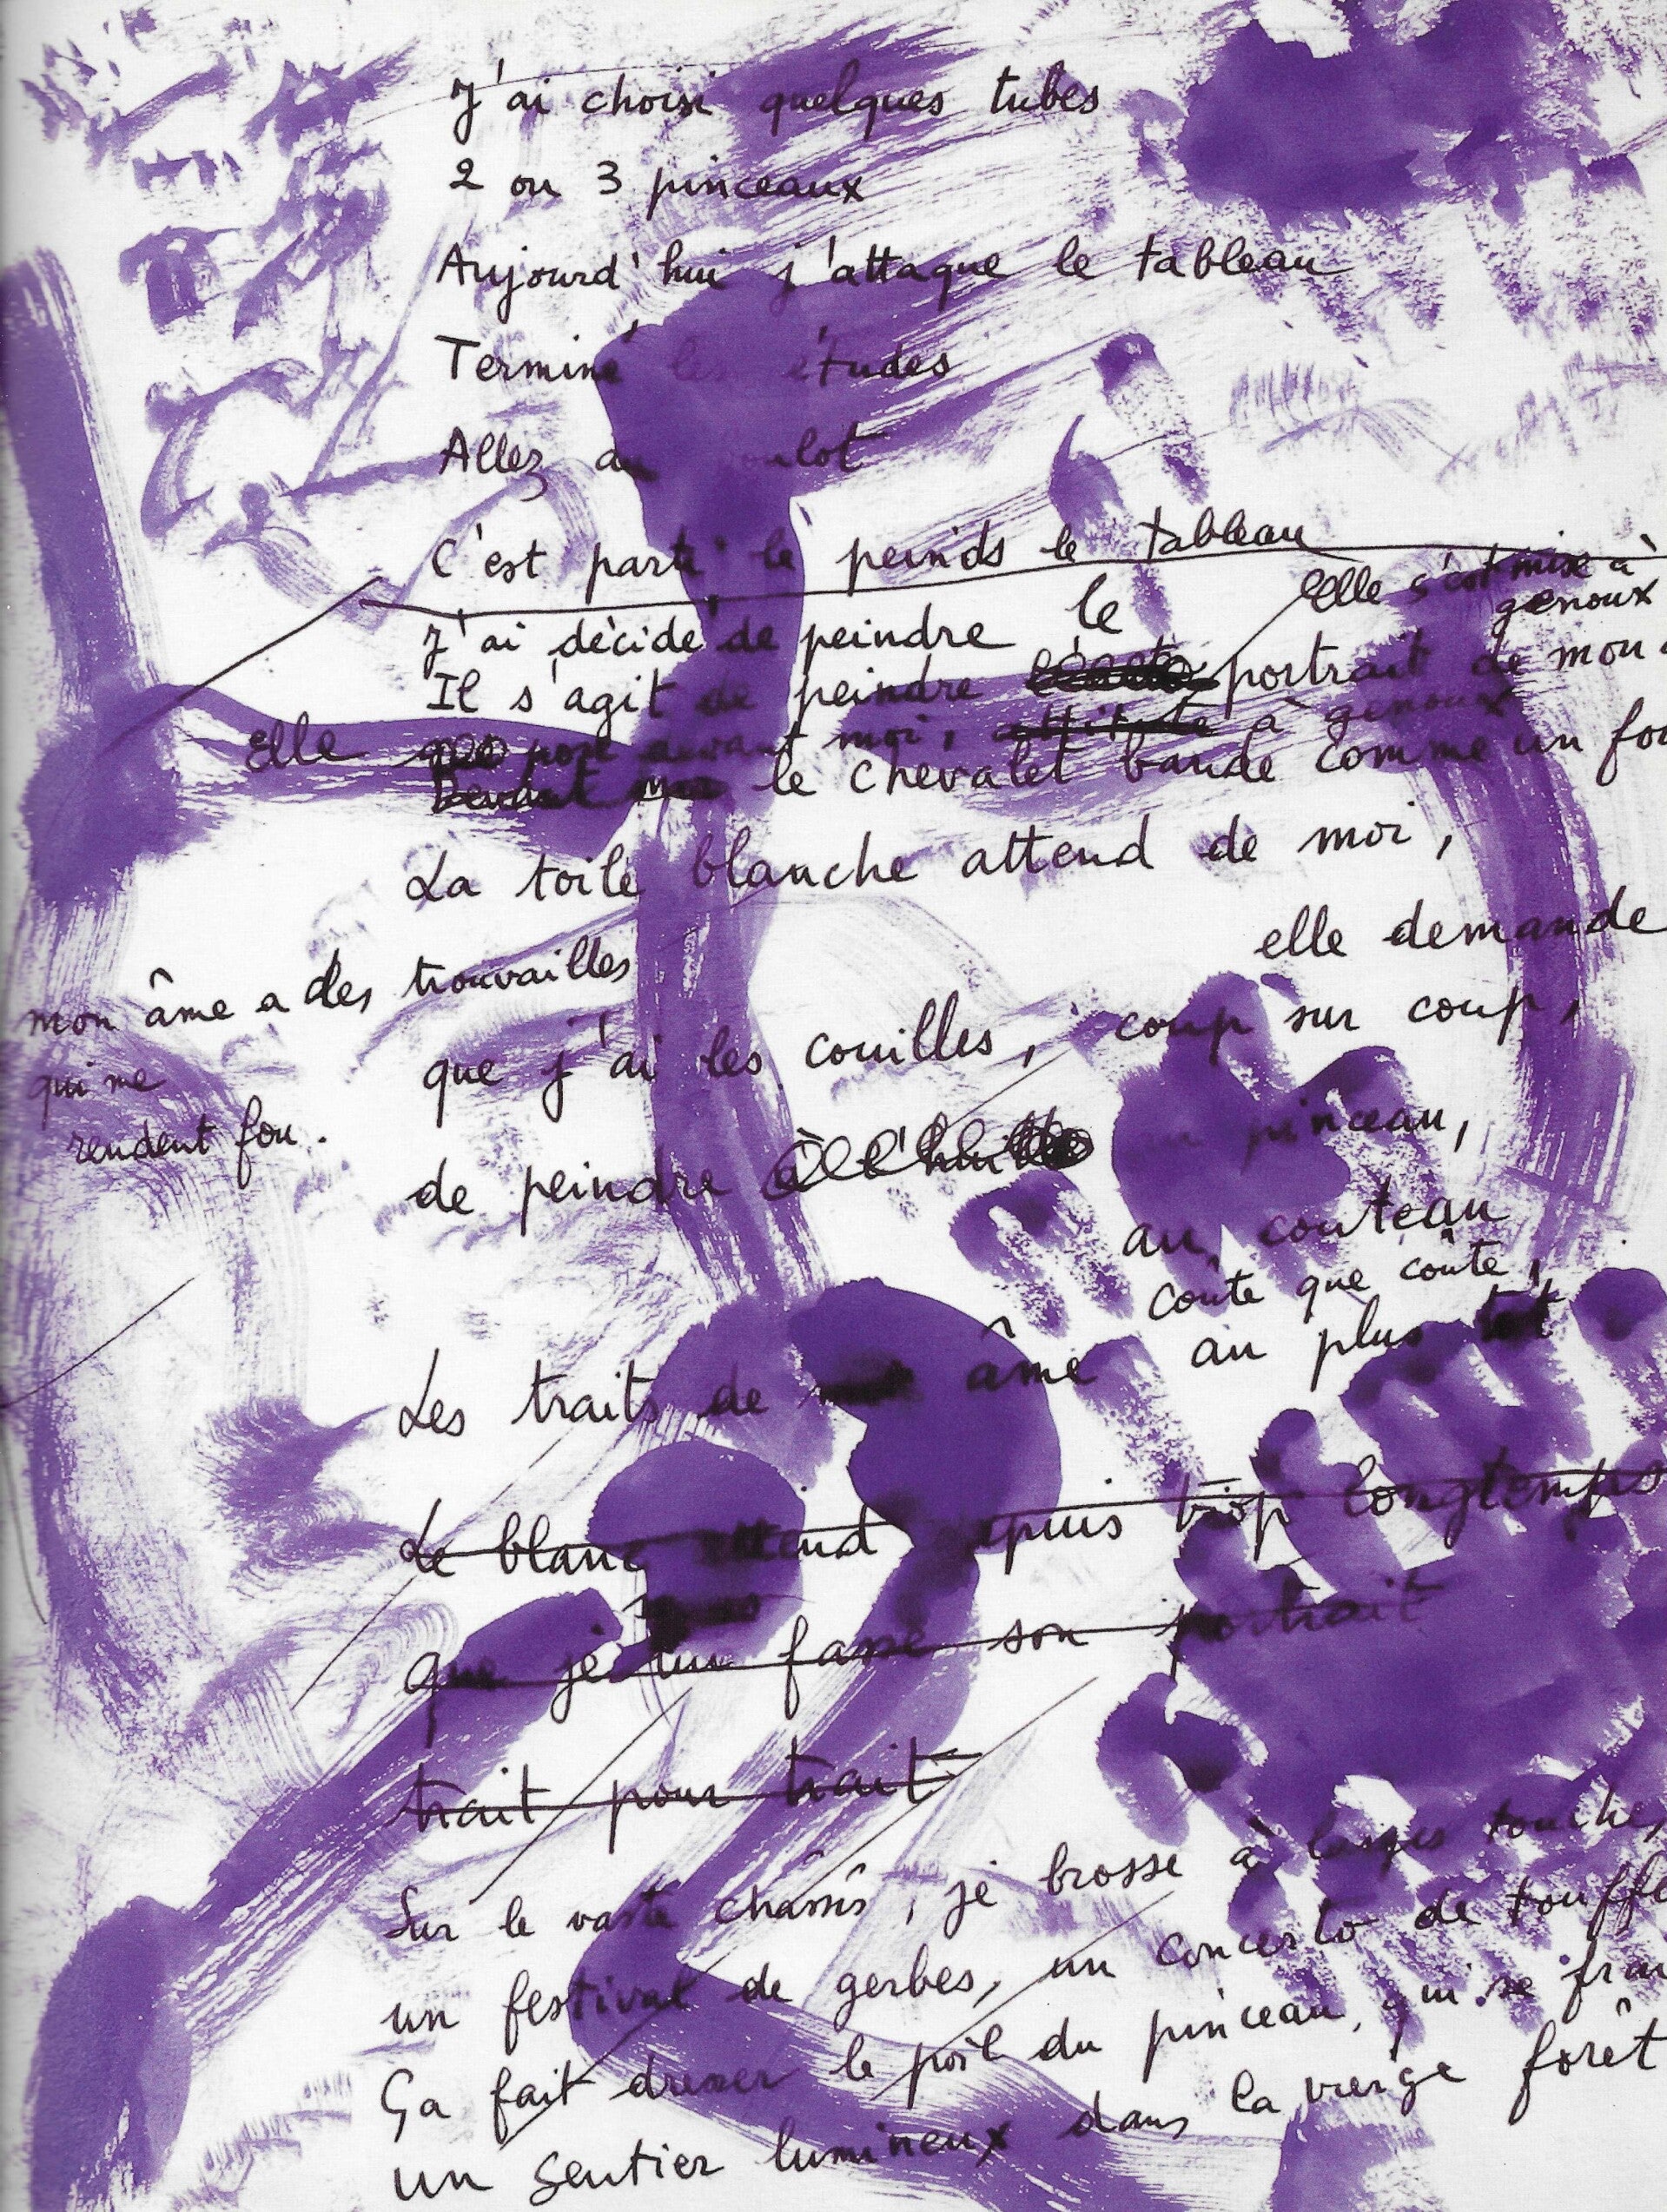 J'ai choisi quelques tubes
2 ou 3 pinceaux
Aujourd'hui j'attaque le tableau
Terminé les études
Allez au boulot
C'est parti je peinds le tableau
Elle s'est mise à
genoux
J'ai décidé de peindre le
Il s'agit de peindre portrait de mon
Elle pose devant moi, attitute à genoux
Devant moi le chevalet bande comme un fou
La toile blanche attend de moi,
elle demande
mon âme a des trouvailles
qui me
rendent fou.
que j'ai les couilles, coup sur coup,
de peindre à l'huile au pinceau,
au couteau
coûte que coûte,
Les traits de mon âme au plus tôt
Le blanc attend depuis trop longtemps
que je lui fasse son portrait
trait pour trait
Sur le vaste chassîs, je brosse à larges touche,
un festival de gerbes, un concerto de touffe
Ça fait dresser le poil du pinceau, qui se fraie
un sentier lumineux dans la vierge forêt